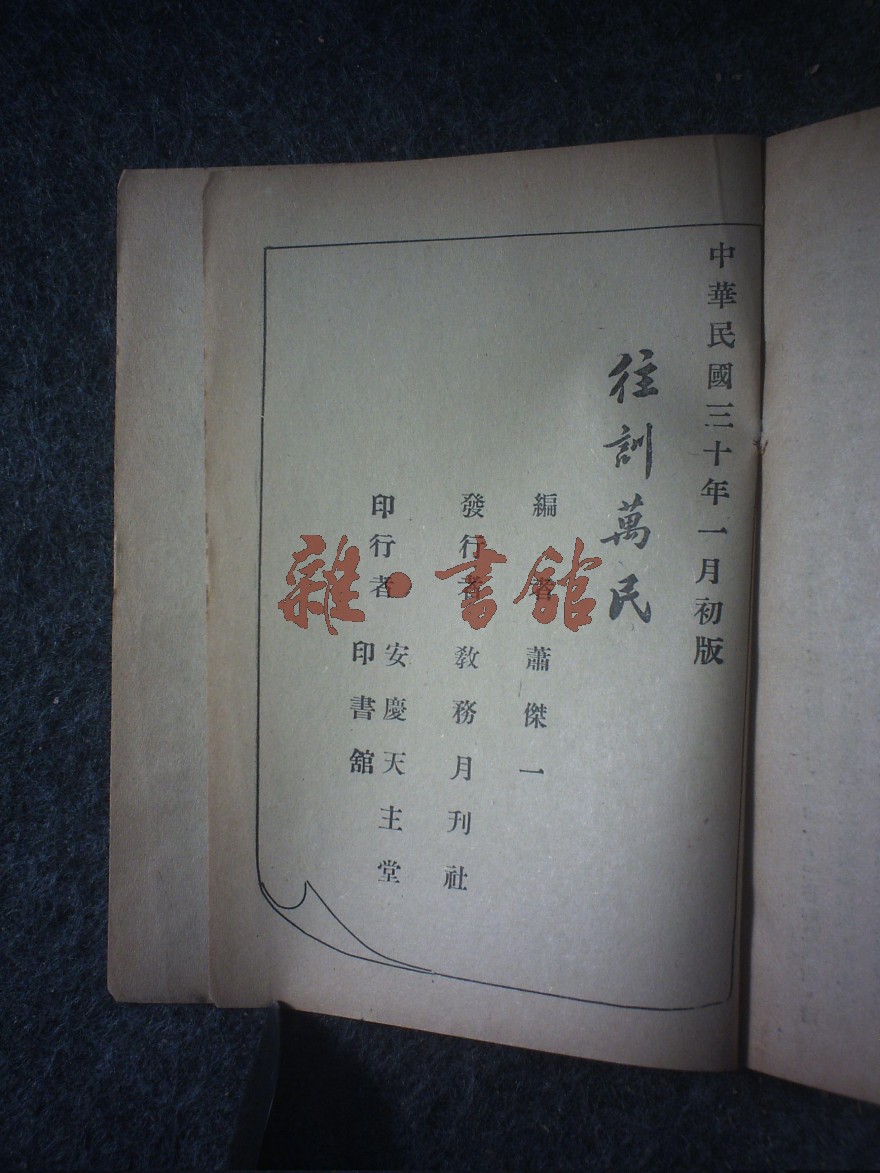 中華民國三十年一月初版
往訓萬民
編者 蕭傑一
發行者 教務月刊社
印行者 安慶天主堂
印書舘
雜·書館